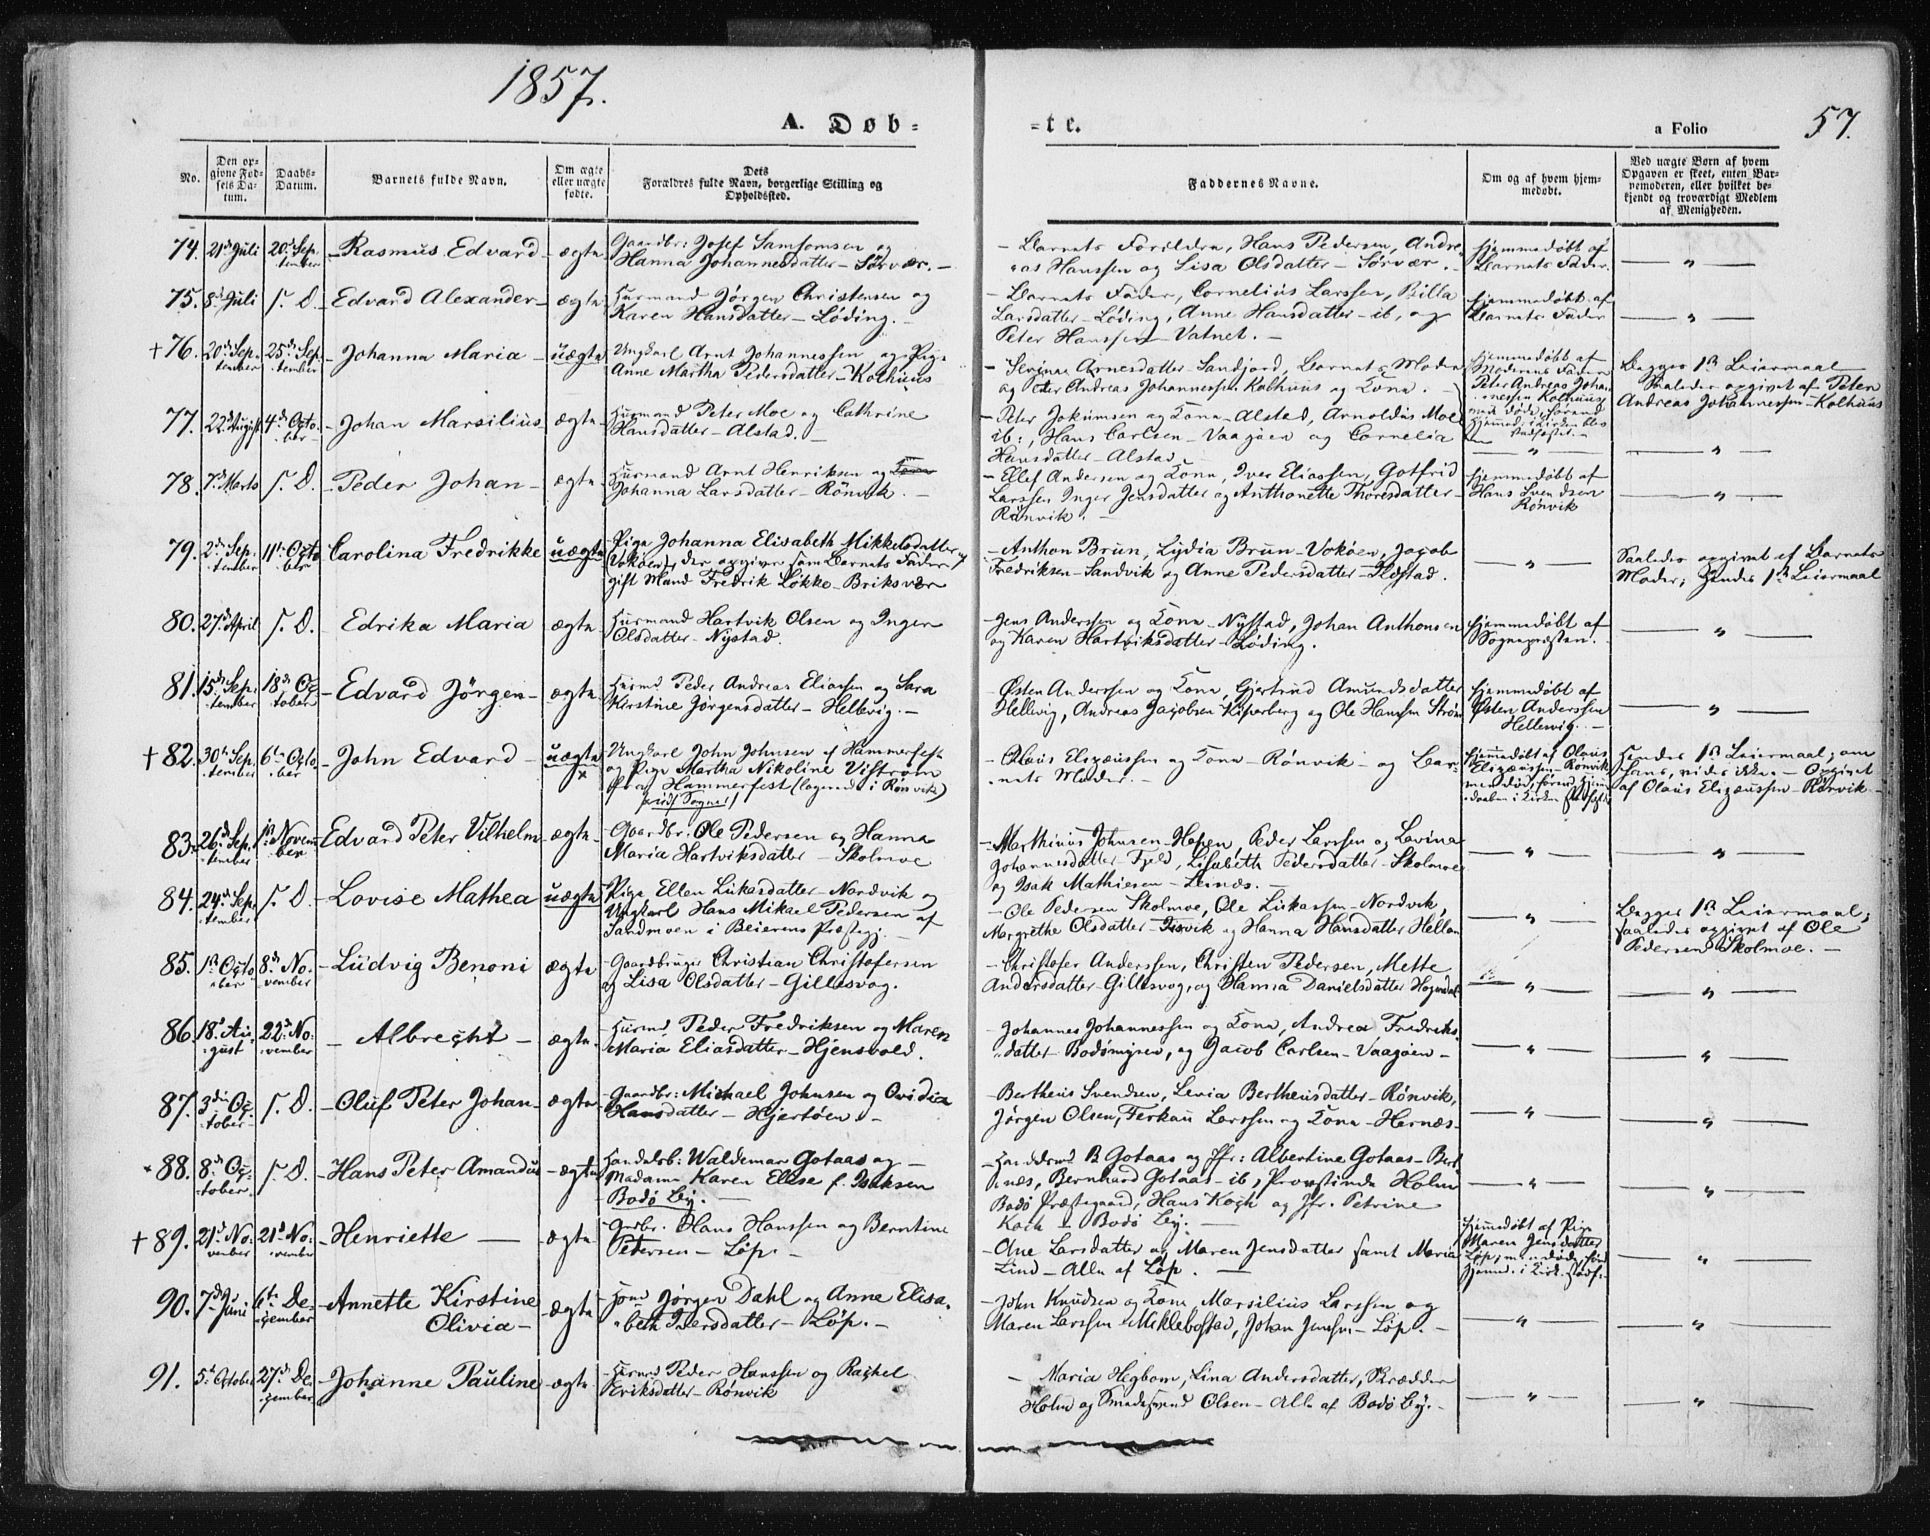 1857.
57.
A. Döb-
-te.
a Folio
No.
Den op-
givne Fød-
sels Da-
tum.
Daabs-
Datum.
Barnets fulde Navn.
Om ægte
eller uægte
fødte.
Dets
Forældres fulde Navn, borgerlige Stilling og
Opholdssted.
Faddernes Navne.
Om og af hvem hjem-
medøbt.
Ved uægte Børn af hvem
Opgaven er skeet, enten Bar-
nemoderen, eller hvilket be-
kjendt og troværdigt Medlem
af Menigheden.
74. 21de Juli 20de Sep-
tember
Rasmus Edvard ægte
Gaardbr: Josef Samsomsen og
Hanna Johannesdatter - Sørvær.
Barnets Forældre, Hans Pedersen, Andre-
as Hanssen og Lisa Olsdatter - Sørvær.
Hjemmedøbt af
Barnets Fader. "
75. 8de Juli s. D. Edvard Alexander ægte
Huusmand Jørgen Christensen og
Karen Hansdatter - Løding.
Barnets Fader, Cornelius Larssen, Billa
Larsdatter - Løding, Anne Hansdatter - ib, og
Peter Hanssen - Vatnet.
Hjemmedøbt af
Barnets Fader "
+ 76. 20de Sep-
tember 25de Sep-
tember
Johanna Maria uægte
Ungkarl Arnt Johannessen og Pige
Anne Martha Pedersdatter - Kolhuus
Arnesdatter - Sandjord, Barnets Moder
og Peter Andreas Johannessen Kolhuus og Kone.
Hjemmedøbt af
Moderens Fader
Peter Andreas Johan-
nessen Kolhuus,
men døde, førend
Hjemmed. i Kirken blev
stadfæstet.
Begges 1ste Leiermaal
Saaledes opgivet af Peter
Andreas Johannessen - Kolhuus
77. 22de August 4de Octo-
ber
Johan Marsilius ægte
Huusmand Peter Moe og Cathrine
Hansdatter - Alstad.
Peter Jokumsen og Kone - Alstad, Arnoldus Moe
ib:, Hans Carlsen - Vaagøen og Cornelia
Hansdatter - Alstad
" "
78. 7de Marts s. D. Peder Johan ægte
Huusmand Arnt Henriksen og Kone
Johanna Larsdatter - Rønvik.
Ellef Andersen og Kone, Iver Eliassen, Gotfrid
Larssen, Inger Jensdatter og Anthonette Thoresdatter -
Rønvik.
Hjemmedøbt af
Hans Svendsen
Rønvik "
79. 2den Sep-
tember 11te Octo-
ber
Carolina Fredrikke uægte
Pige Johanna Elisabeth Mikkelsdatter af
Vokøen, der opgiver som Barnets Fader
gift Mand Fredrik Løkke - Briksvær
Anthon Brun, Lydia Brun - Vokøen, Jacob
Fredriksen - Sandvik og Anne Pedersdatter
"
Saaledes opgivet af Barnets
Moder; hendes 1ste Leiermaal
80. 27de April s. D. Edrika Maria ægte
Huusmand Hartvik Olsen og Inger
Olsdatter - Nystad.
Jens Anderssen og Kone - Nystad, Johan Anthonsen
og Karen Hartviksdatter - Løding.
Hjemmedøbt af
Sognepræsten. "
81. 15de Sep-
tember 18de Oc-
tober
Edvard Jörgen ægte
Huusmd Peder Andreas Eliassen og Sara
Kirstine Jørgensdatter - Hellevig.
Østen Anderssen og Kone, Gjertrud Amundsdatter
Hellevig, Andreas Jacobsen Kiperberg og Ole Hanssen Strøm
Hjemmedøbt af
Østen Anderssen
Hellevig. "
+ 82. 30te Sep-
tember 6te Octo-
ber
John Edvard uægte
x
Ungkarl John Johnsen af Hammerfest
og Pige Martha Nikoline Vistrøm
af Hammerfest (logerende i Rønvik)
Olaus Elizæussen og Kone - Rønvik - og Bar-
nets Moder.
Hjemmedøbt af Olaus
Elizæussen - Rønvik
men død, førend Hjemme-
daaben i Kirken stadfæst.
Hendes 1ste Leiermaal; om
hans, vides ikke. - Opgivet
af Olaus Elizæussen - Rønvik
83. 26de Sep-
tember 1ste Novem-
ber
Edvard Peter Vilhelm ægte
Gaardbr: Ole Pedersen og Hanna
Maria Hartviksdatter - Skolmoe
Marthinus Johnsen, Peder Larssen og Lavina
Johannesdatter - Fjeld, Lisabeth Pedersdatter - Skolmoe
og Isak Mathiesen
" "
84. 24de Sep-
tember s. D. Lovise Mathea uægte
Pige Ellen Lukasdatter - Nordvik og
Ungkarl Hans Mikael Pedersen af
Sandmoen i Beierens Præstegj.
Ole Pedersen Skolmoe, Ole Lukassen - Nordvik,
Margrethe Olsdatter og Hanna Hansdatter
"
Begges 1ste Leiermaal;
saaledes opgivet af Ole
Pedersen Skolmoe.
85. 1ste Octo-
ber 8de No-
vember
Ludvig Benoni ægte
Gaardbruger Christian Christofersen
og Lisa Olsdatter - Gillesvog.
Christofer Anderssen, Christen Pedersen, Mette
Andersdatter - Gillesvog, og Hanna Danielsdatter
" "
86. 18de Au-
gust 22de No-
vember
Albrecht ægte
Huusmd Peder Fredriksen og Maren
Maria Eliasdatter - Hjensvold.
Johannes Johannessen og Kone, Andrea Fredriks-
datter - Bodømyren, og Jacob Carlsen - Vaagøen
" "
87. 3die Oc-
tober s. D. Oluf Peter Johan ægte
Gaardbr: Michael Johnsen og Ovidia
Hansdatter - Hjertøen.
Bertheus Svendsen, Levia Bertheusdatter - Rønvik,
Jørgen Olsen, Larssen og Kone - Hernæs
" "
88. 8de Oc-
tober s. D. Hans Peter Amandus ægte
Handelsb: Waldemar Gotaas og
Madame Karen Elise f. Isaksen
Bodø By.
Handelsmd B Gotaas og Jfr: Albertine Gotaas - Bert-
næs, Bernhard Gotaas - ib, Provstinde Holm
Bodø Præstegaard, Hans Koch og Jfr. Petrine
Koch - Bodø By.
" "
+ 89. 21de No-
vember 21de No-
vember
Henriette ægte
Gaardbr. Hans Hanssen og Berntine
Petersen - Løp.
Ane Larsdatter og Maren Jensdatter samt Maria
Lind - Alle af Løp.
Hjemmedøbt af Pige
Maren Jensdatter
Løp; men død, før
Hjemmed. i Kirk. stadf. "
90. 7de Juni 6te De-
cember
Annette Kirstine
Olivia ægte
Jørgen Dahl og Anne Elisa-
beth Iversdatter - Løp.
John Knudsen og Kone, Marsilius Larssen og
Maren Larssen - Meklebostad, Johan Jenssen - Løp.
" "
91. 5te October 27de De-
cember
Johanne Pauline ægte
Huusmd Peder Hanssen og Rachel
Eriksdatter - Rønvik
Maria Hegbom, Lina Andersdatter, Skrædder
Holm og Smedesvend Olsen - Alle af Bodø By.
" "